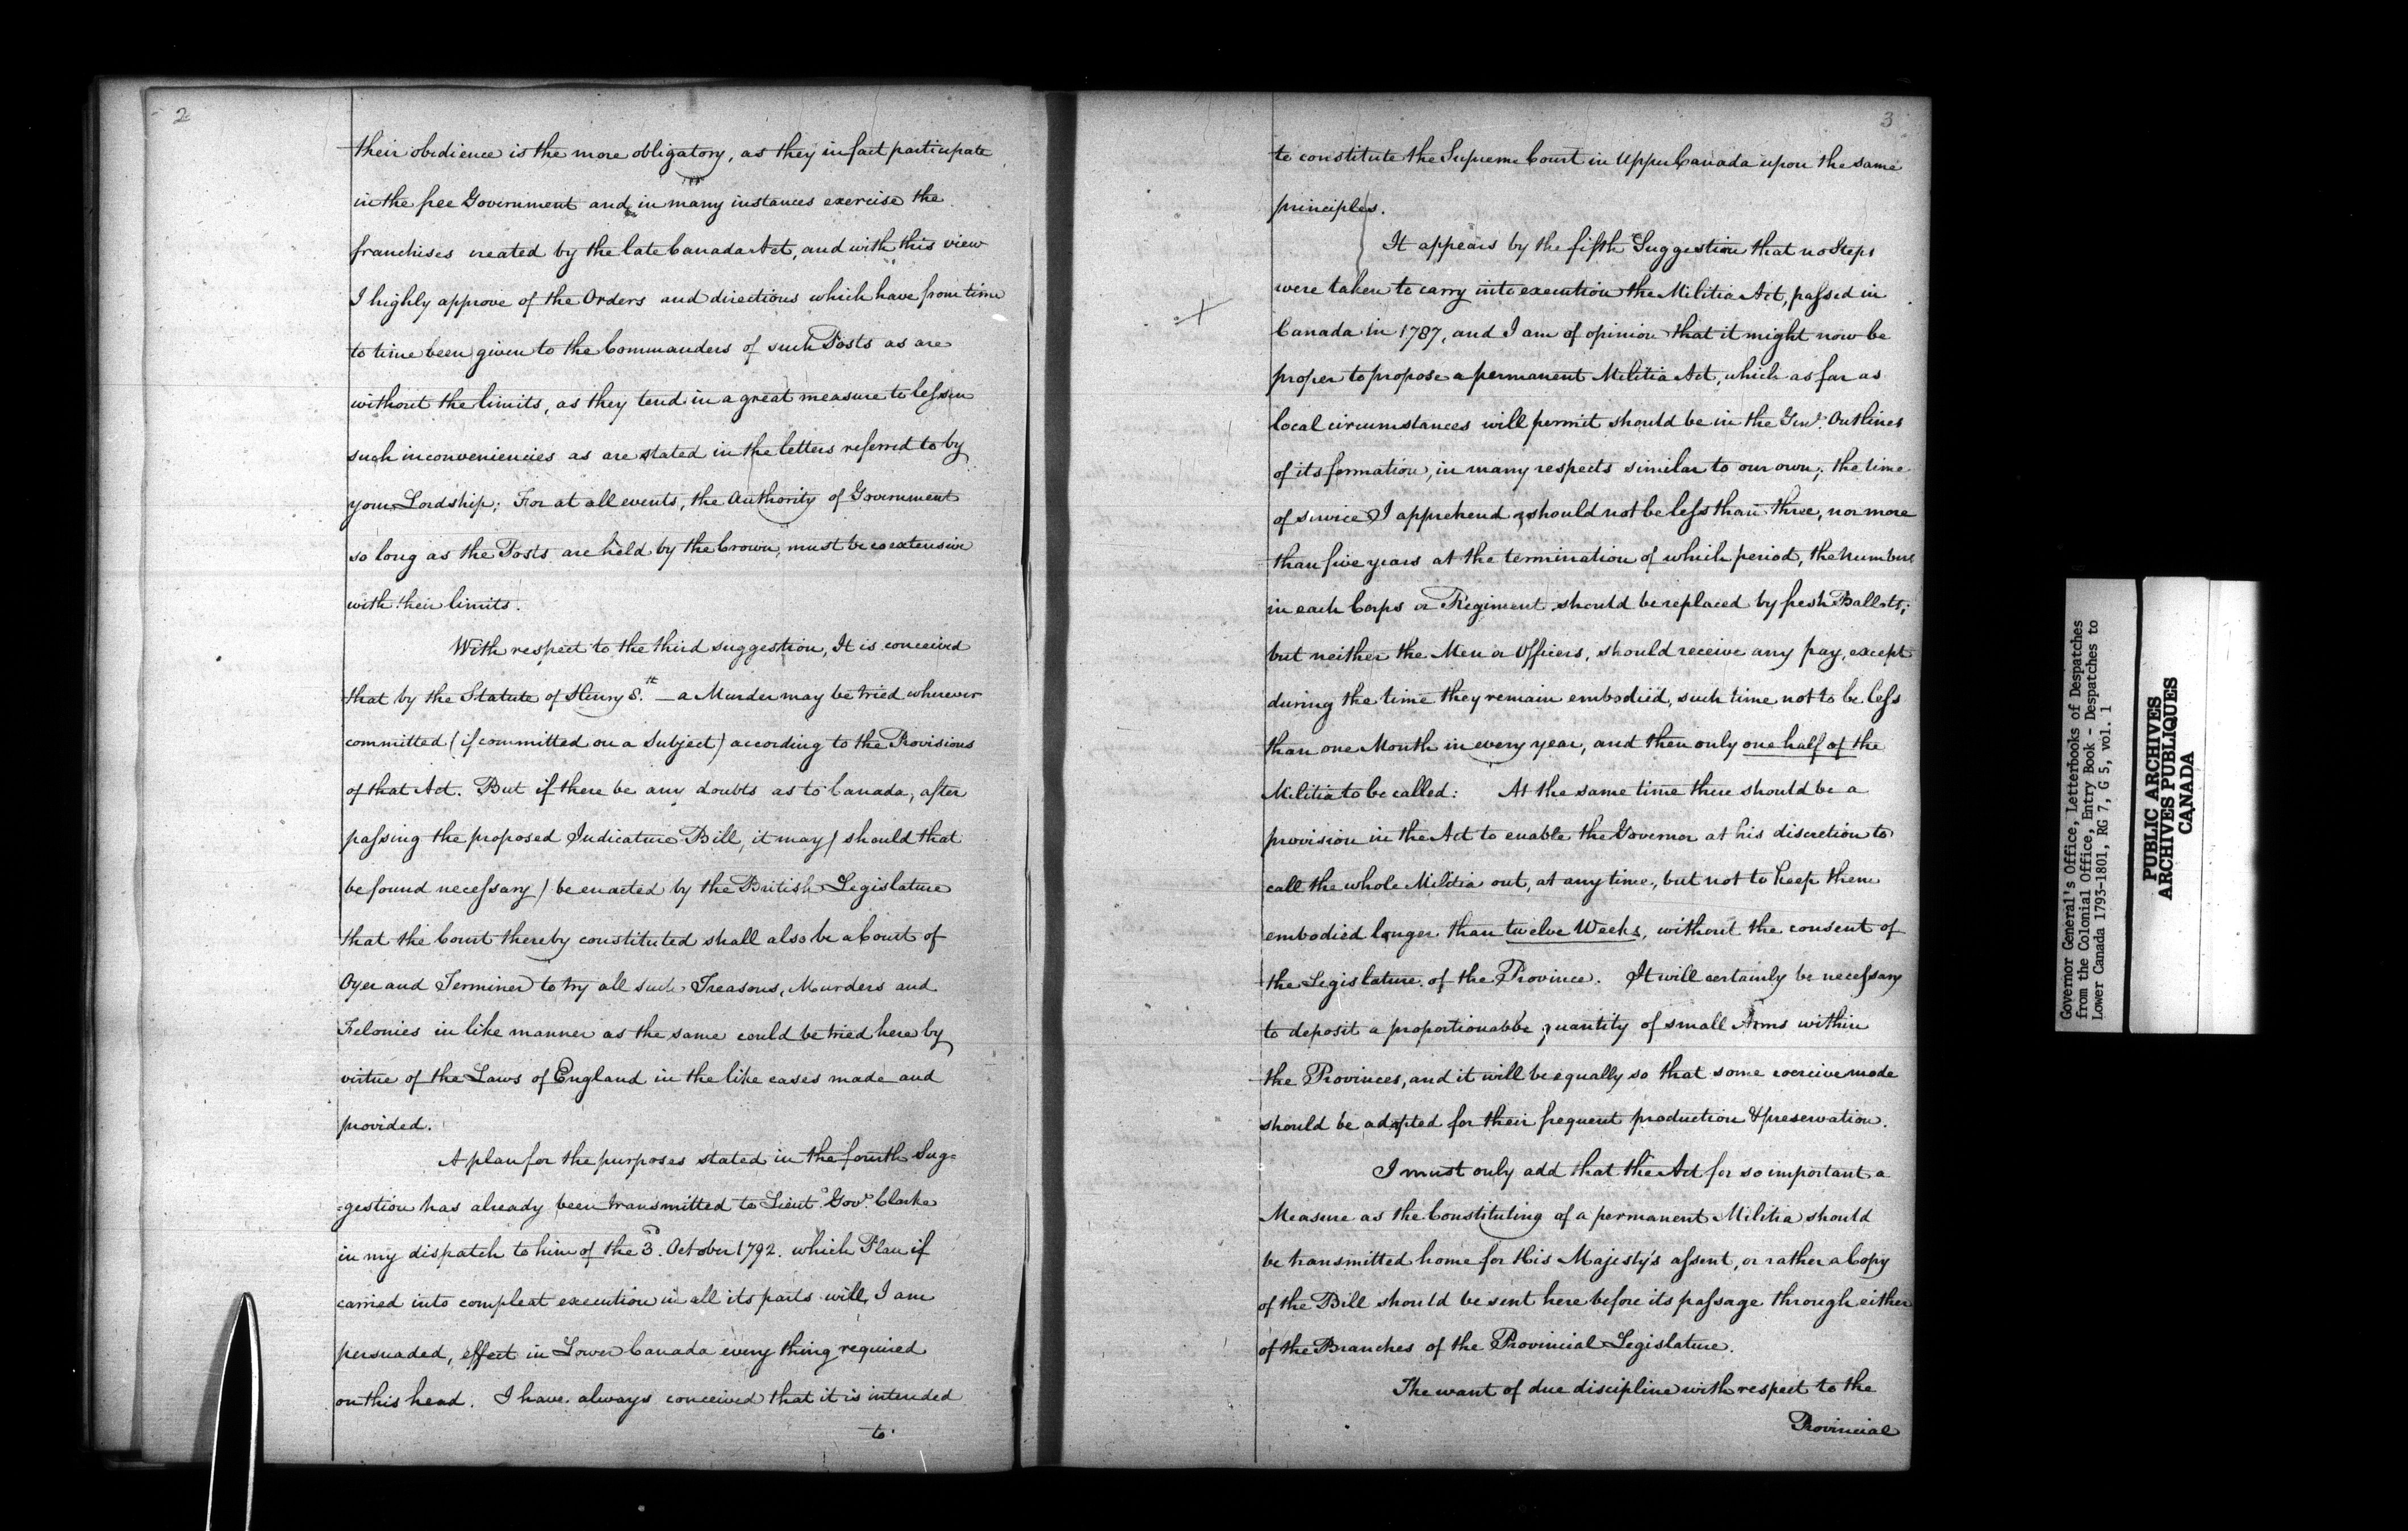 2
their obedience is the more obligatory, as they in fact participate
in the free Government and in many instances exercise the
franchises created by the late Canada Act, and with this view
I highly approve of the Orders and directions which have from time
to time been given to the Commanders of such Posts as are
without the limits, as they tend in a great measure to lessen
such inconveniencies as are stated in the letters referred to by
your Lordship; For at all events, the Authority of Government
so long as the Posts are held by the Crown, must be coextensive
with their limits.
With respect to the third suggestion, It is conceived
that by the Statute of Henry 8.th — a Murder may be tried wherever
committed (if committed on a Subject) according to the Provisions
of that Act. But if there be any doubts as to Canada, after
passing the proposed Judicature Bill, it may (should that
be found necessary) be enacted by the British Legislature
that the Court thereby constituted shall also be a Court of
Oyer and Terminer to try all such Treasons, Murders and
Felonies in like manner as the same could be tried here by
virtue of the Laws of England in the like cases made and
provided.
A plan for the purposes stated in the fourth Sug=
=gestion has already been transmitted to Lieut.t Gov.r Clarke
in my dispatch to him of the 3.d October 1792. which Plan if
carried into compleat execution in all its parts will, I am
persuaded, effect in Lower Canada every thing required
on this head. I have always conceived that it is intended
to
3
to constitute the Supreme Court in Upper Canada upon the same
principles.
It appears by the fifth Suggestion that no Steps
were taken to carry into execution the Militia Act, passed in
Canada in 1787, and I am of opinion that it might now be
proper to propose a permanent Militia Act, which as far as
local circumstances will permit should be in the Gen.l Outlines
of its formation, in many respects similar to our own; the time
of service I apprehend should not be less than three, nor more
than five years at the termination of which period, the numbers
in each Corps or Regiment should be replaced by fresh Ballots;
but neither the Men or Officers, should receive any pay, except
during the time they remain embodied, such time not to be less
than one Month in every year, and then only one half of the
Militia to be called: At the same time there should be a
provision in the Act to enable the Governor at his discretion to
call the whole Militia out, at any time, but not to keep them
embodied longer than twelve Weeks, without the consent of
the Legislature of the Province. It will certainly be necessary
to deposit a proportionable quantity of small Arms within
the Provinces, and it will be equally so that some coercive mode
should be adopted for their frequent production & preservation.
I must only add that the Act for so important a
Measure as the Constituting of a permanent Militia should
be transmitted home for His Majesty's assent, or rather a Copy
of the Bill should be sent here before its passage through either
of the Branches of the Provincial Legislature.
The want of due discipline with respect to the
Provincial
Governor General's Office, Letterbooks of Despatches
from the Colonial Office, Entry Book - Despatches to
Lower Canada 1793-1801, RG 7, G 5, vol. 1
PUBLIC ARCHIVES
ARCHIVES PUBLIQUES
CANADA